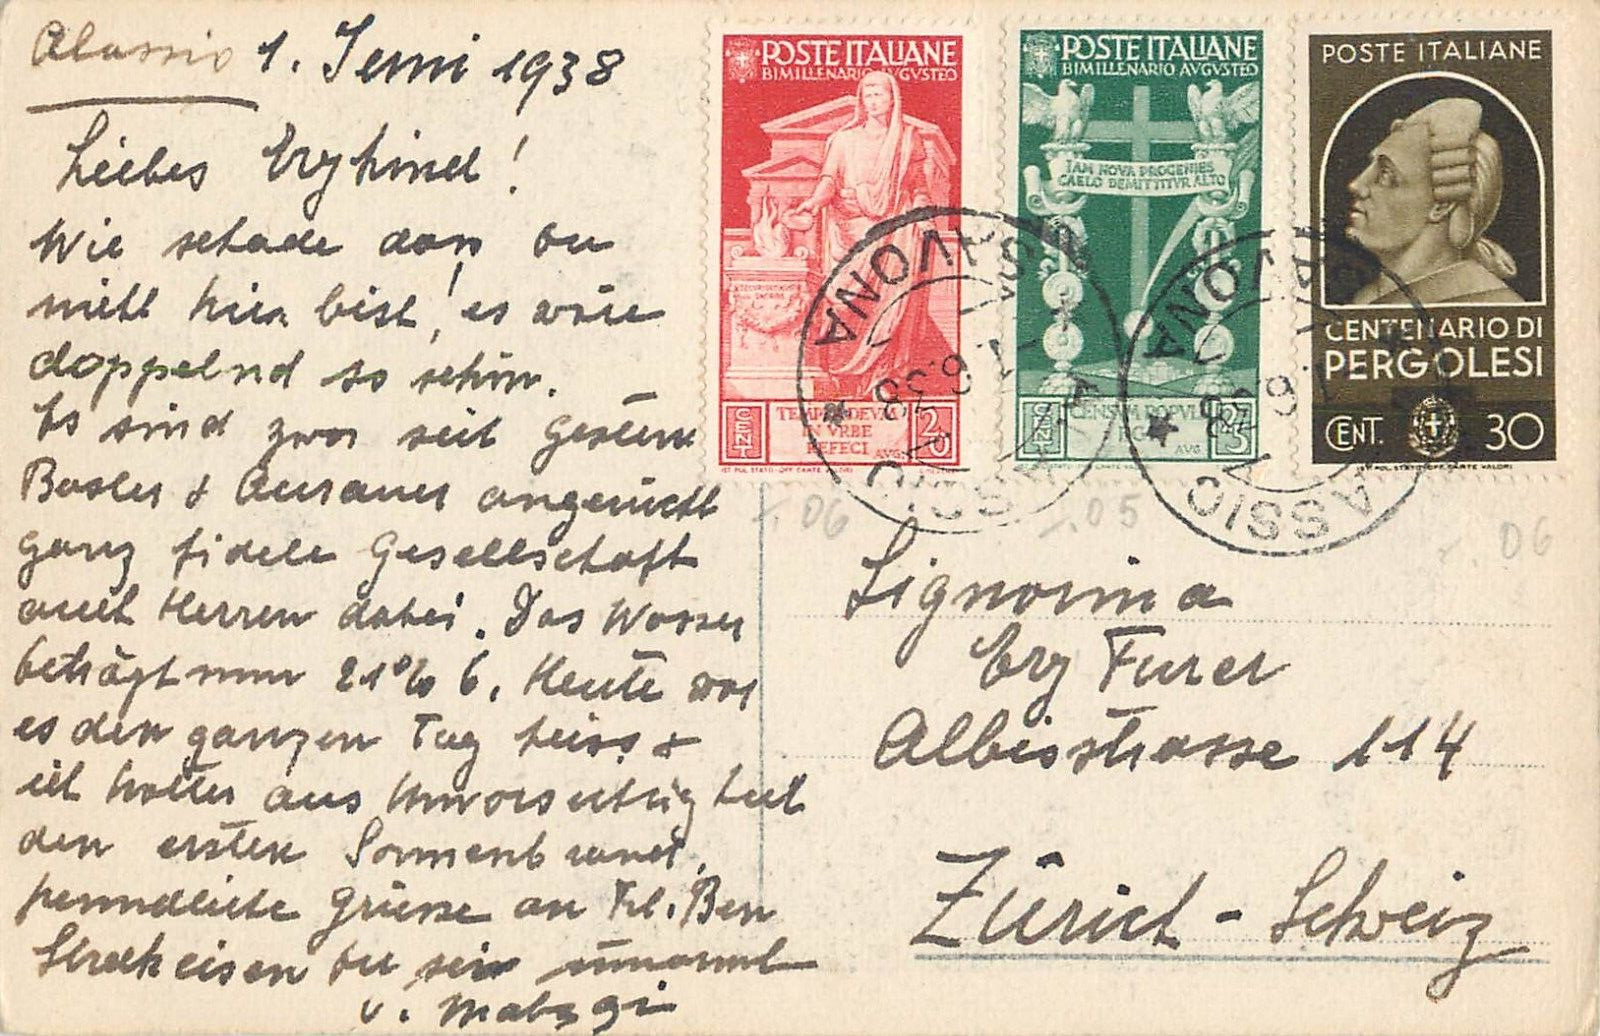 Alassio 1. Juni 1938
Liebes Erykind!
Wie schade dass du
nicht hier bist, es wäre
doppelnd so schön.
Es sind zwar seit gestern
Basler & Aarauer angerückt
ganz fidele Gesellschaft
auch Herren dabei. Das Wasser
beträgt nun 21%
Heute war
es den ganzen Tag heiss &
ich holte aus Unvorsichtigkeit
den ersten Sonnenbrand.
freundliche Grüsse an Frl. Ben
Streckeisen du sei umarmt
v.
POSTE ITALIANE
BIMILLENARIO AVGVSTEO
CENT 20
AVG.
IST. POL. STATO-OFF. CARTE VALORI
POSTE ITALIANE
BIMILLENARIO AVGVSTEO
IAM NOVA PROGENIES
CAELO DEMITTITVR ALTO
CENSVM POPVLI
AVG
POSTE ITALIANE
CENTENARIO DI
PERGOLESI
CENT. 30
IST. POL. STATO-OFF. CARTE VALORI
ALASSIO * SAVONA
1.6.38
ALASSIO * SAVONA
-.06
-.05
-.06
Signorina
Ery Furer
Albisstrasse 114
Zürich - Schweiz